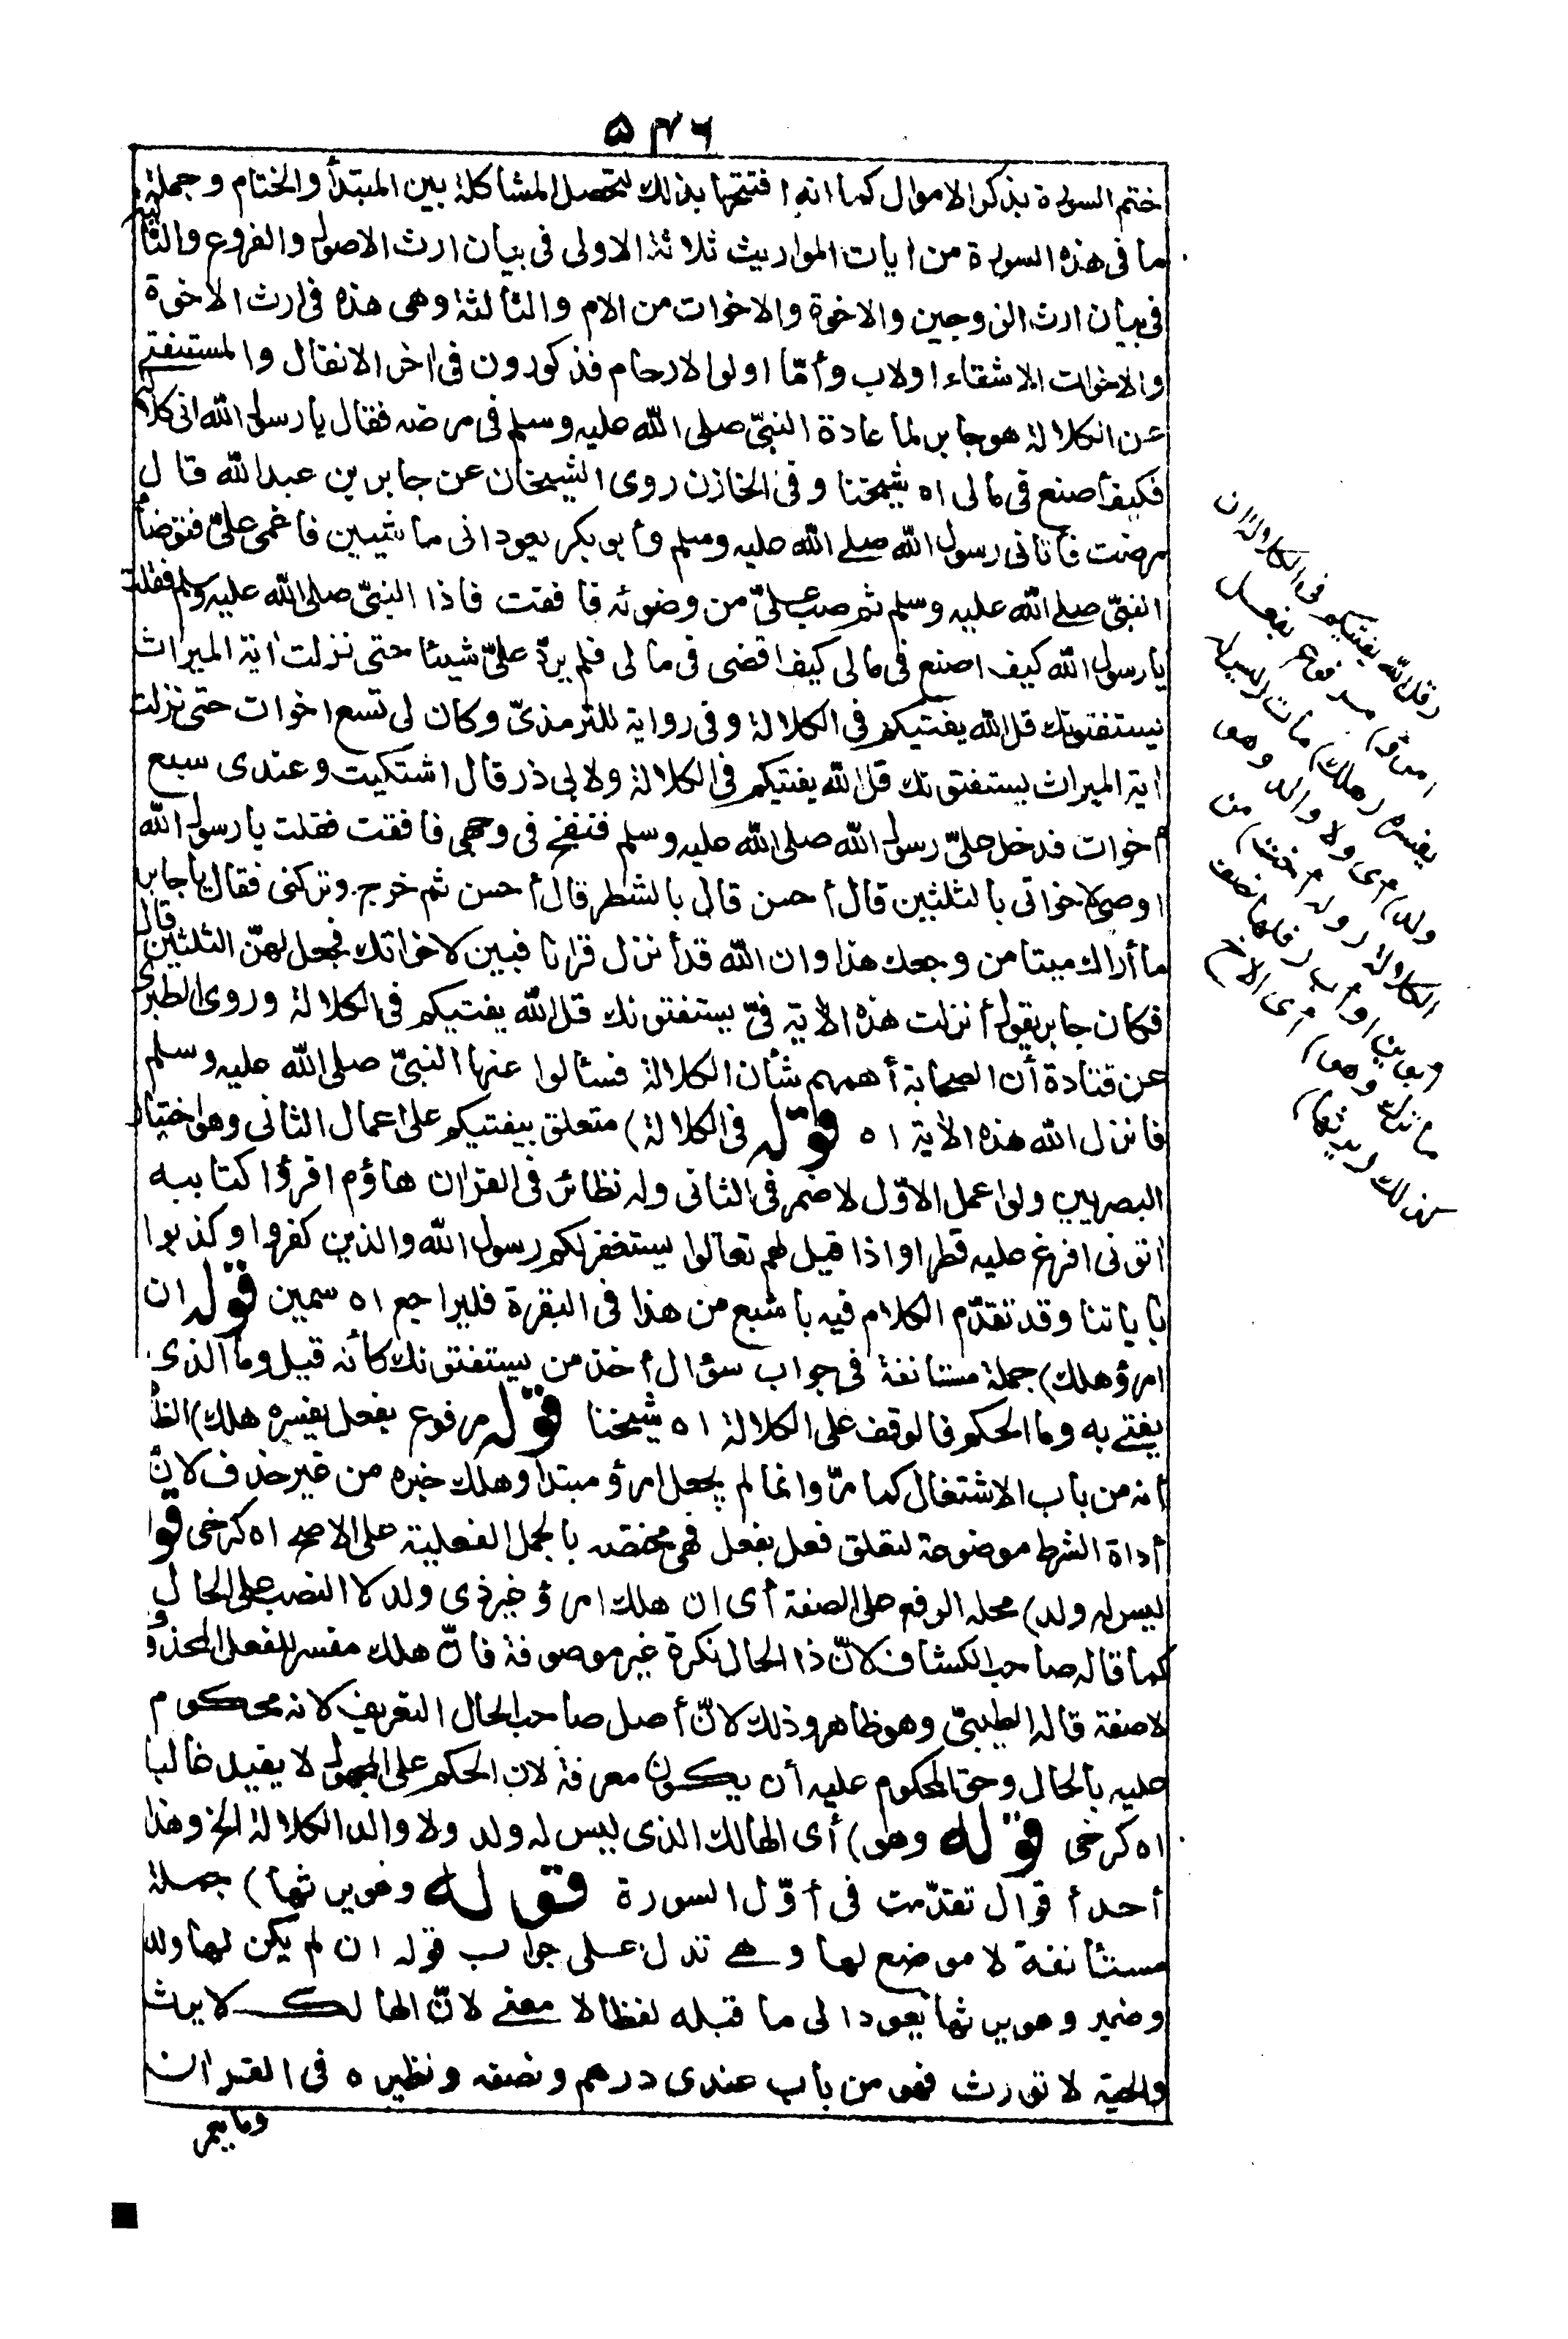 ٥٤٦
ختم السورة بذكر الاموال كما انه افتتحها بذلك لتحصل المشاكلة بين المبتدأ والختام وجملة
ما فى هذه السورة من ايات المواريث ثلاثة الاولى فى بيان ارث الاصول والفروع والثانية
فى بيان ارث الزوجين والاخوة والاخوات من الام والثالثة وهى هذه فى ارث الاخوة
والاخوات الاشقاء اولاب وأمّا اولوا الارحام فذكورون فى اخر الانفال والمستفتى
عن الكلالة هو جابر لما عادة النبىّ صلى الله عليه وسلم فى مرضه فقال يا رسول الله انى كلالة
فكيف أصنع فى مالى اه شيخنا وفى الخازن روى الشيخان عن جابر بن عبد الله قال
مرضت فأتانى رسول الله صلے الله عليه وسلم وأبو بكر يعودانى ماشيين فاغمى علىّ فتوضأ
النبىّ صلے الله عليه وسلم ثم صب علىّ من وضوئه فافقت فاذا النبىّ صلى الله عليه وسلم فقلت
يا رسول الله كيف اصنع فى مالى كيف اقضى فى مالى فلم يردّ علىّ شيئا حتى نزلت اية الميراث
يستفتونك قل الله يفتيكم فى الكلالة وفى رواية للترمذىّ وكان لى تسع اخوات حتى نزلت
اية الميراث يستفتونك قل الله يفتيكم فى الكلالة ولابى ذر قال اشتكيت وعندى سبع
أخوات فدخل علىّ رسول الله صلى الله عليه وسلم فنفخ فى وجهى فافقت فقلت يا رسول الله
اوصى لاخواتى بالثلثين قال أحسن قال بالشطر قال أحسن ثم خرج وتركنى فقال يا جابر
ما أراك ميتا من وجعك هذا وان الله قد أنزل قرانا فبين لاخواتك فجعل لهنّ الثلثين قال
فكان جابر يقول أنزلت هذه الاٰية فىّ يستفتونك قل الله يفتيكم فى الكلالة وروى الطبرى
عن قتادة أن الصحابة أهمهم شأن الكلالة فسئالوا عنها النبىّ صلى الله عليه وسلم
فانزل الله هذه الاٰية اه قوله فى الكلالة) متعلق بيفتيكم على اعمال الثانى وهو اختيار
البصريين ولو اعمل الاوّل لاضمر فى الثانى وله نظائر فى القران هاؤم اقرؤا كتابيه
اٰتونى افرغ عليه قطرا واذا قيل لهم تعالوا يستغفر لكم رسول الله والذين كفروا وكذبوا
باياتنا وقد تقدّم الكلام فيه باشبع من هذا فى البقرة فليراجع اه سمين قوله ان
امرؤ هلك) جملة مستانفة فى جواب سؤال أخذ من يستفتونك كأنه قيل وما الذى
يفتے به وما الحكم فالوقف على الكلالة اه شيخنا قوله مرفوع بفعل يفسره هلك) الظا
أنه من باب الاشتغال كما مرّ وانما لم يجعل امرؤ مبتدأ وهلك خبره من غير حذف لانّ
أداة الشرط موضوعة لتعلق فعل بفعل فهى مختصه بالجمل الفعلية على الاصح اه كرخى قوله
ليس له ولد) محله الرفع على الصفة أى ان هلك امرؤ غير ذى ولد لا النصب على الحال
كما قاله صاحب الكشاف لانّ ذا الحال نكرة غير موصوفة فانّ هلك مفسر للفعل المحذوف
لا صفة قاله الطيبىّ وهو ظاهر وذلك لانّ أصل صاحب الحال التعريف لانه محكوم
عليه بالحال وحق المحكوم عليه أن يكون معرفة لان الحكم على المجهول لا يفيد غالبا
اه كرخى قوله وهو) أى الهالك الذى ليس له ولد ولا والد الكلالة الخ وهذا
أحد أقوال تقدّمت فى أوّل السورة قوله وهو يرثها) جملة
مستأنفة لا موضع لها وهے تدل على جواب قوله ان لم يكن لها ولد
وضمير وهو يرثها يعود الى ما قبله لفظا لا معنے لانّ الهالك لا يرث
والحية لا تورث فهو من باب عندى درهم ونصفه ونظيره فى القران
وما يعمر
(قل الله يفتيكم فى الكلالة ان
امرؤ) مرفوع بفعل
يفسره (هلك) مات (ليس له
ولد) أى ولا والد وهو
الكلالة (وله أخت) من
أبوين او أب (فلها نصف
ما ترك وهو) أى الاخ
كذلك (يرثها)